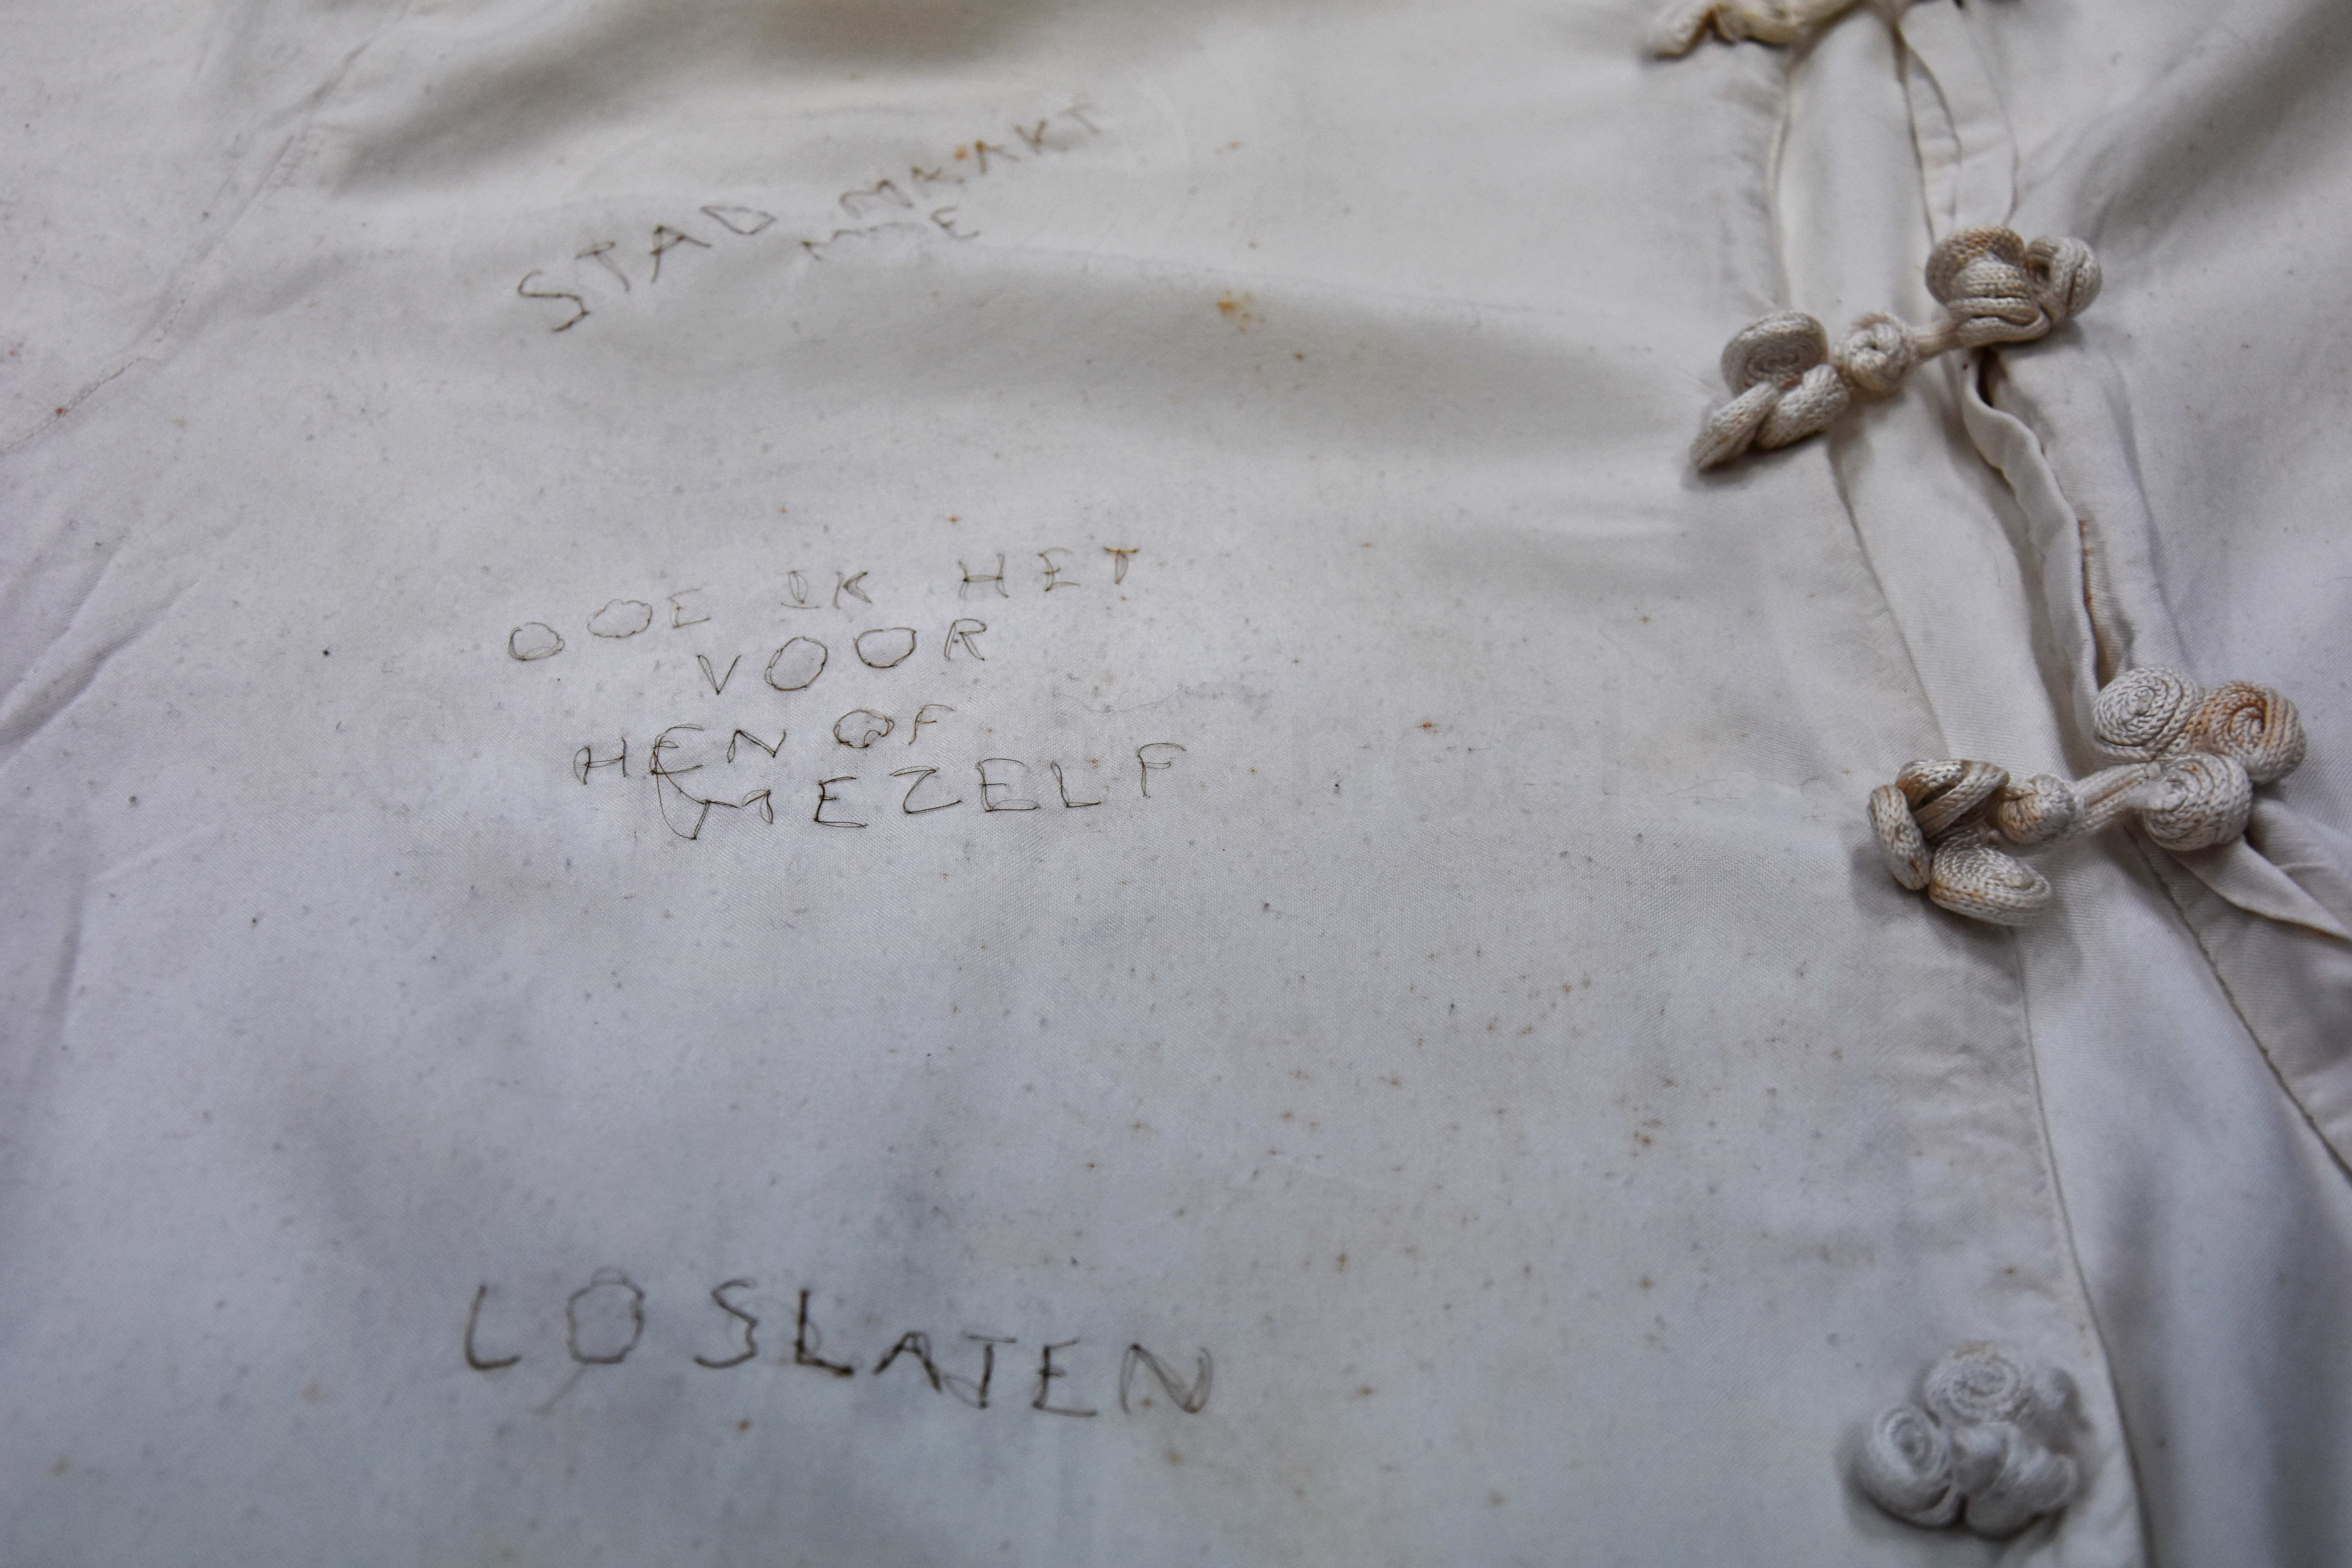 STAD MAAKT
MOE
DOE IK HET
VOOR
HEN OF
MEZELF
LOSLATEN